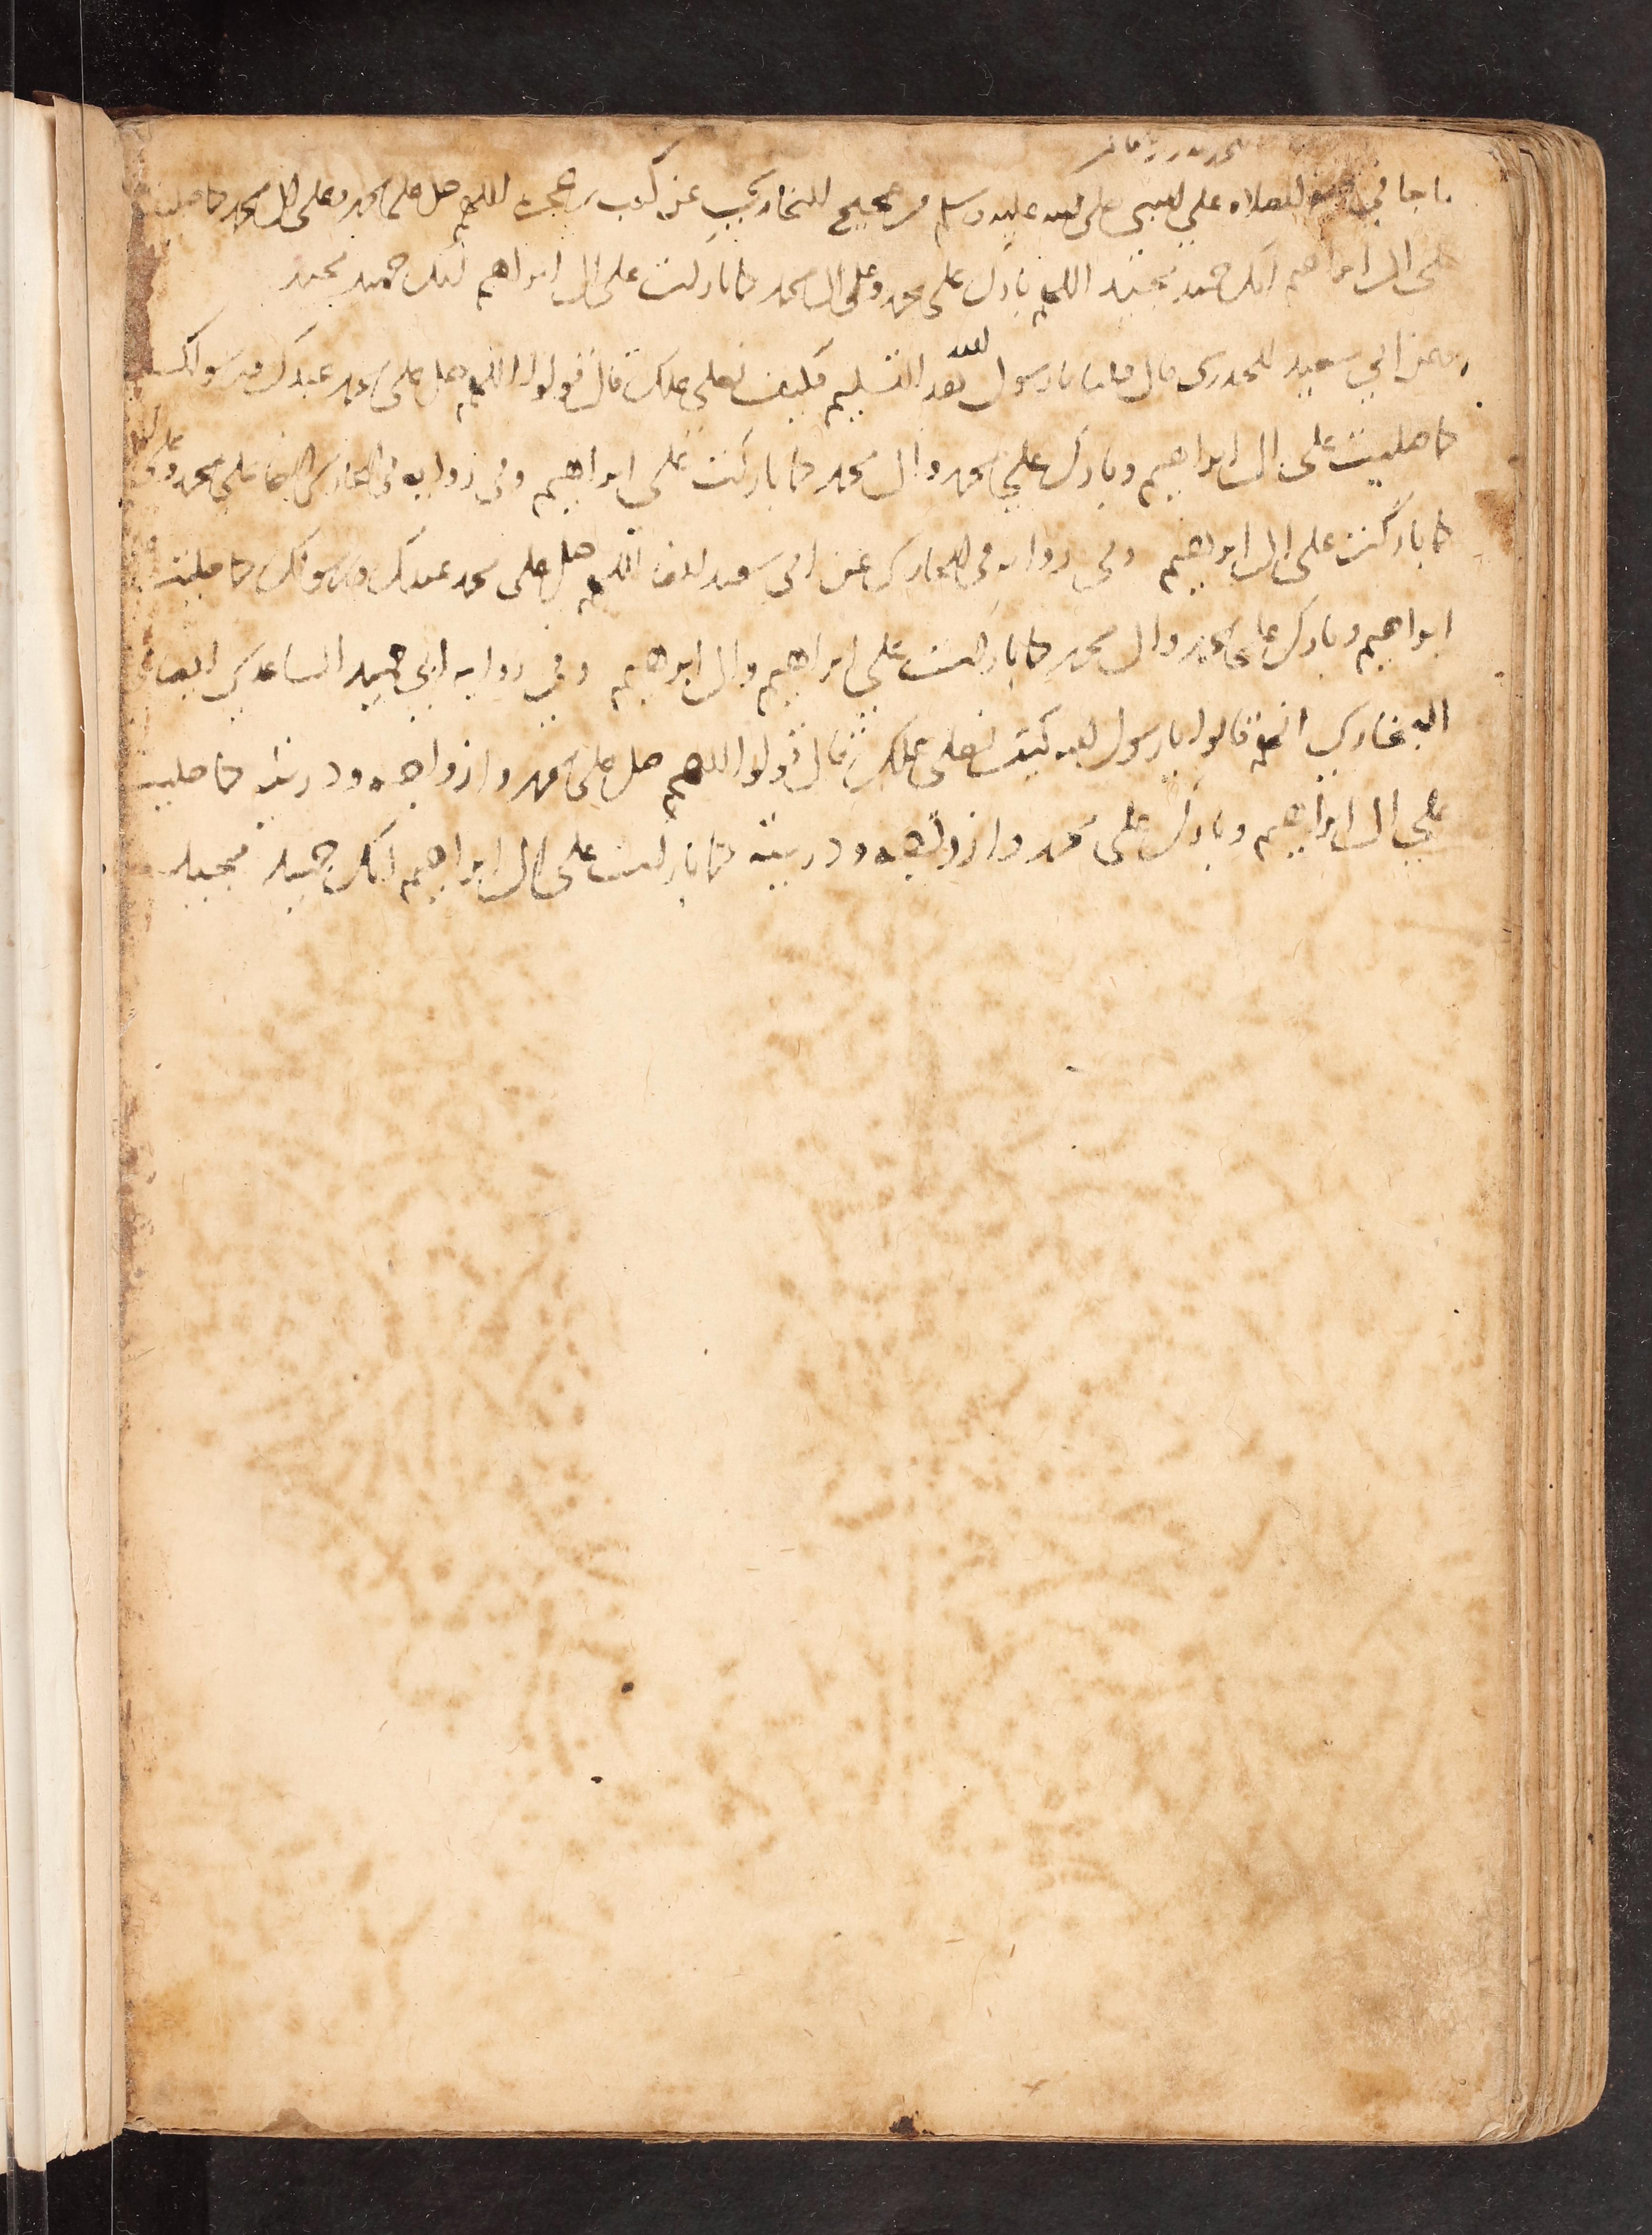 ما جا في الصلاه علي النبي صلى الله عليه وسلم من صحيح البخاري عن كعب بن عجرة اللهم صل على محمد وعلى ال محمد كما صليت
على ال ابراهيم انك حميد مجيد اللهم بارك على محمد وعلى ال محمد كما باركت على ال ابراهيم انك حميد مجيد
وعن ابي سعيد الخدري قال قلنا يا رسول الله بعد التسليم فكيف نصلي عليك قال قولوا اللهم صل على محمد عبدك ورسولك
كما صليت على ال ابراهيم وبارك علي محمد وال محمد كما باركت على ابراهيم وفي رواية في البخاري ايضا علي محمد وعلى ال
كما باركت على ال ابراهيم وفي رواية في البخاري عن ابي سعيد ايضا اللهم صل على محمد عبدك ورسولك كما صليت
ابراهيم وبارك على محمد وال محمد كما باركت علي ابراهيم وال ابراهيم وفي رواية ابي حميد الساعدي ايضا
البخاري انهم قالوا يا رسول الله كيف نصلي عليك قال قولوا اللهم صل على محمد وازواجه وذريته كما صليت
علي ال ابراهيم وبارك على محمد وازواجه وذريته كما باركت على ال ابراهيم انك حميد مجيد